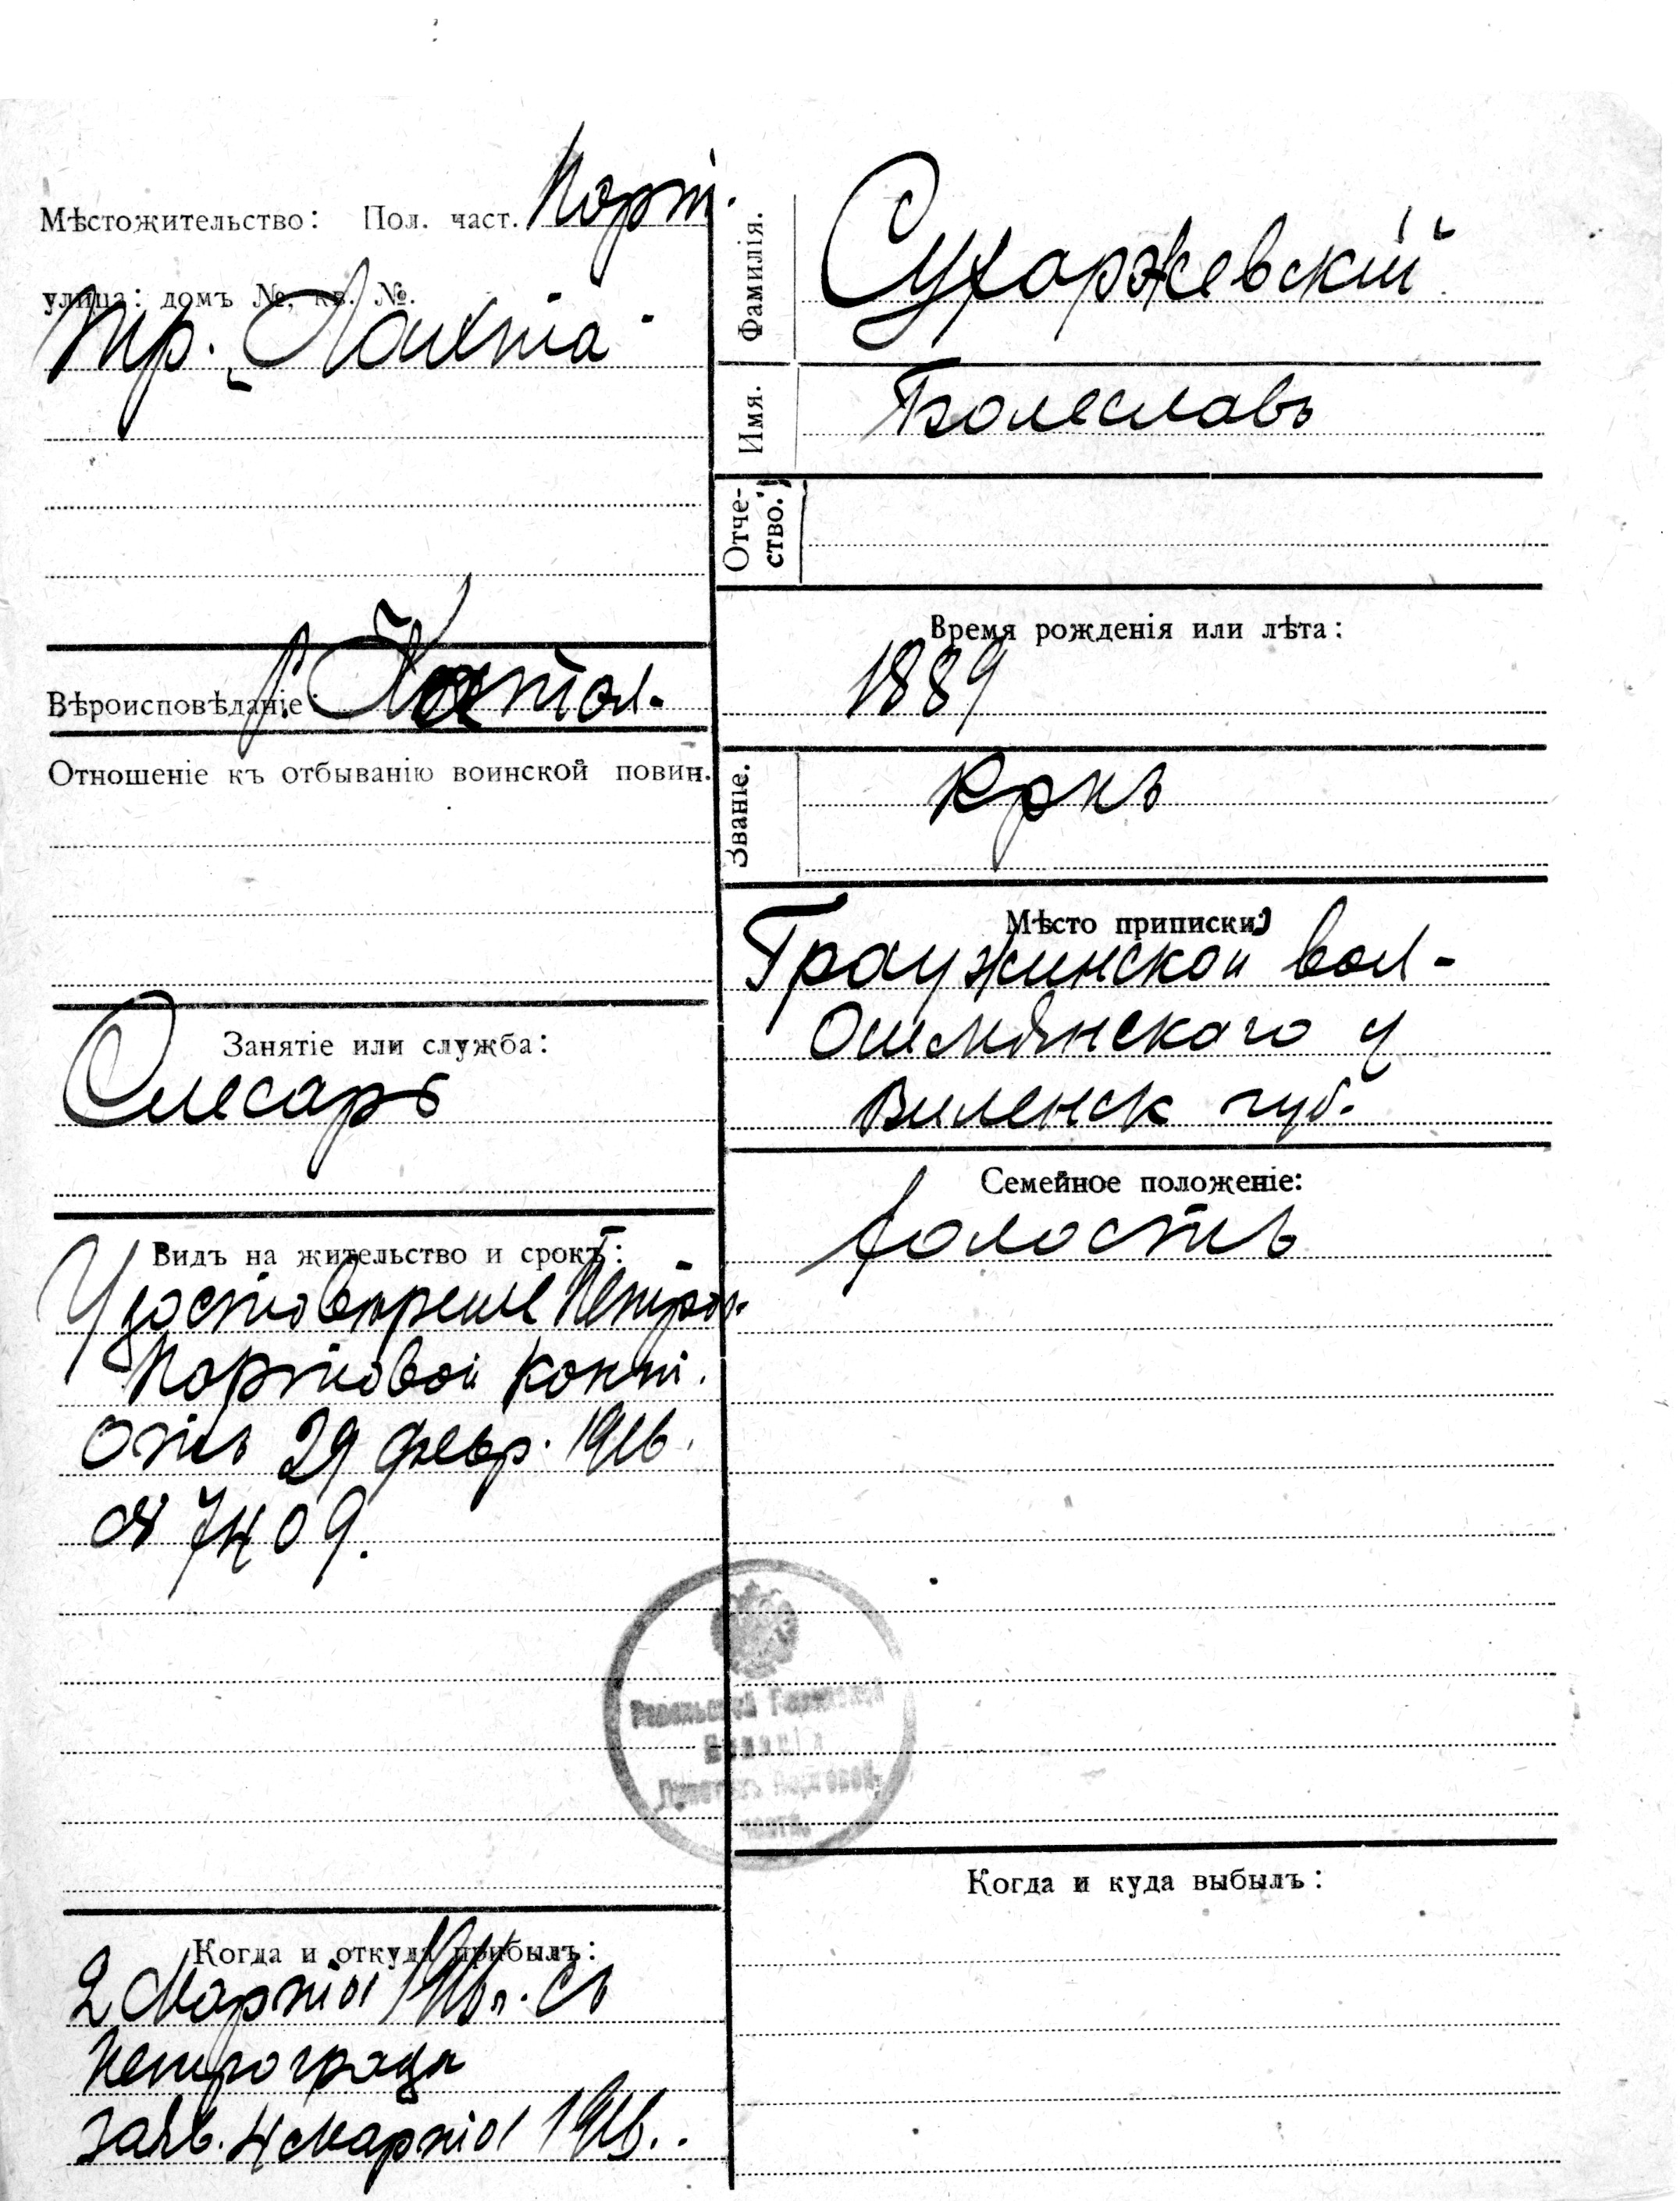 Мѣстожительство: Пол. част. Порт.
улица: домъ №, кв. №.
тр. „Лахта"
Вѣроисповѣданіе: Р. Катол.
Отношеніе къ отбыванію воинской повин.
Занятіе или служба:
Слесарь
Видъ на жительство и срокъ:
Удостовѣреніе Петрог.
Портовой конт.
отъ 29 февр. 1916.
№ 7409.
Когда и откуда прибылъ:
2 Марта 1916 г. съ
Петрограда
заяв. 4 марта 1916..
Фамилія. Сухаржевскій
Имя. Болеславъ
Отче-
ство.
Время рожденія или лѣта:
1889
Званіе. Крнъ
Мѣсто приписки:
Граужинской вол.
Ошмянскаго у
Виленск губ.
Семейное положеніе:
холостъ
Ревельской Городской
Полиціи
Портовой
части
Когда и куда выбылъ: